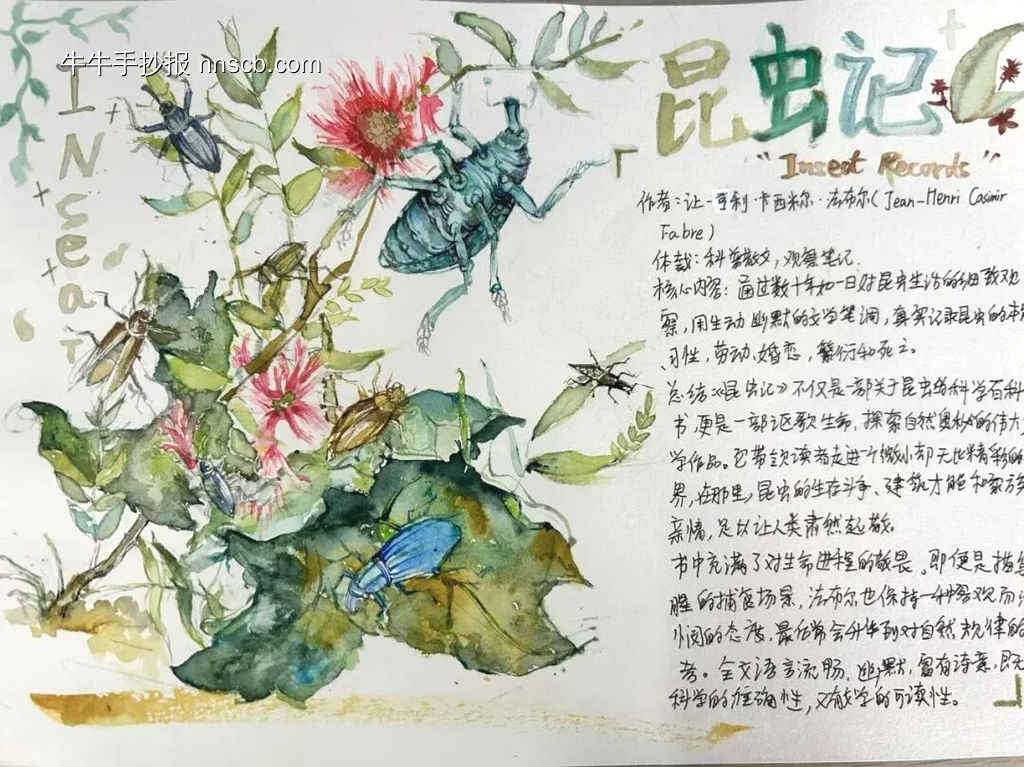 牛牛手抄报 nnscb.com
INSeaT
昆虫记
"Insect Records"
作者：让-亨利·卡西米尔·法布尔（Jean-Henri Casimir
Fabre）
体裁：科普散文，观察笔记.
核心内容：通过数十年如一日对昆虫生活的细致观
察，用生动幽默的文学笔调，真实记录昆虫的本
习性，劳动、婚恋，繁衍和死亡。
总结《昆虫记》不仅是一部关于昆虫的科学百科
书，更是一部讴歌生命，探索自然奥秘的伟大
学作品。它带领读者走进一个微小却无比精彩的
界，在那里，昆虫的生存斗争、建筑才能和家族
亲情，足以让人类肃然起敬。
书中充满了对生命进程的敬畏。即便是描
腥的捕食场景，法布尔也保持一种客观而
悯的态度，最后常会升华到对自然规律的
考。全文语言流畅，幽默，富有诗意，既
科学的准确性，又有文学的可读性。